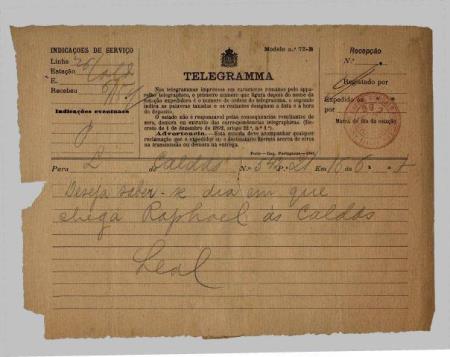 INDICAÇÕES DE SERVIÇO
Linha
Estação
E.
Recebeu
Indicações eventuaes
Modelo n.º 72-B
TELEGRAMMA
Nos telegrammas impressos em caracteres romanos pelo apparelho telegraphico, o primeiro numero que figura depois do nome da estação expedidora é o numero de ordem do telegramma, o segundo indica as palavras taxadas e os restantes designam a data e a hora do deposito.
O estado não é responsavel pelas consequencias resultantes de erro, demora ou extravio das correspondencias telegraphicas. (Decreto de 1 de dezembro de 1892, artigo
Advertencia. — Esta estação deve acompanhar qualquer reclamação que o expedidor ou o destinatario fizerem acerca de erros na transmissão ou demora na entrega.
Recepção
N.º
Registado por
Expedido ás
Marca do dia da estação
Para L de Caldas N.º Em 16-6
Deseja saber-se dia em que
chega Raphael ás Caldas
Leal